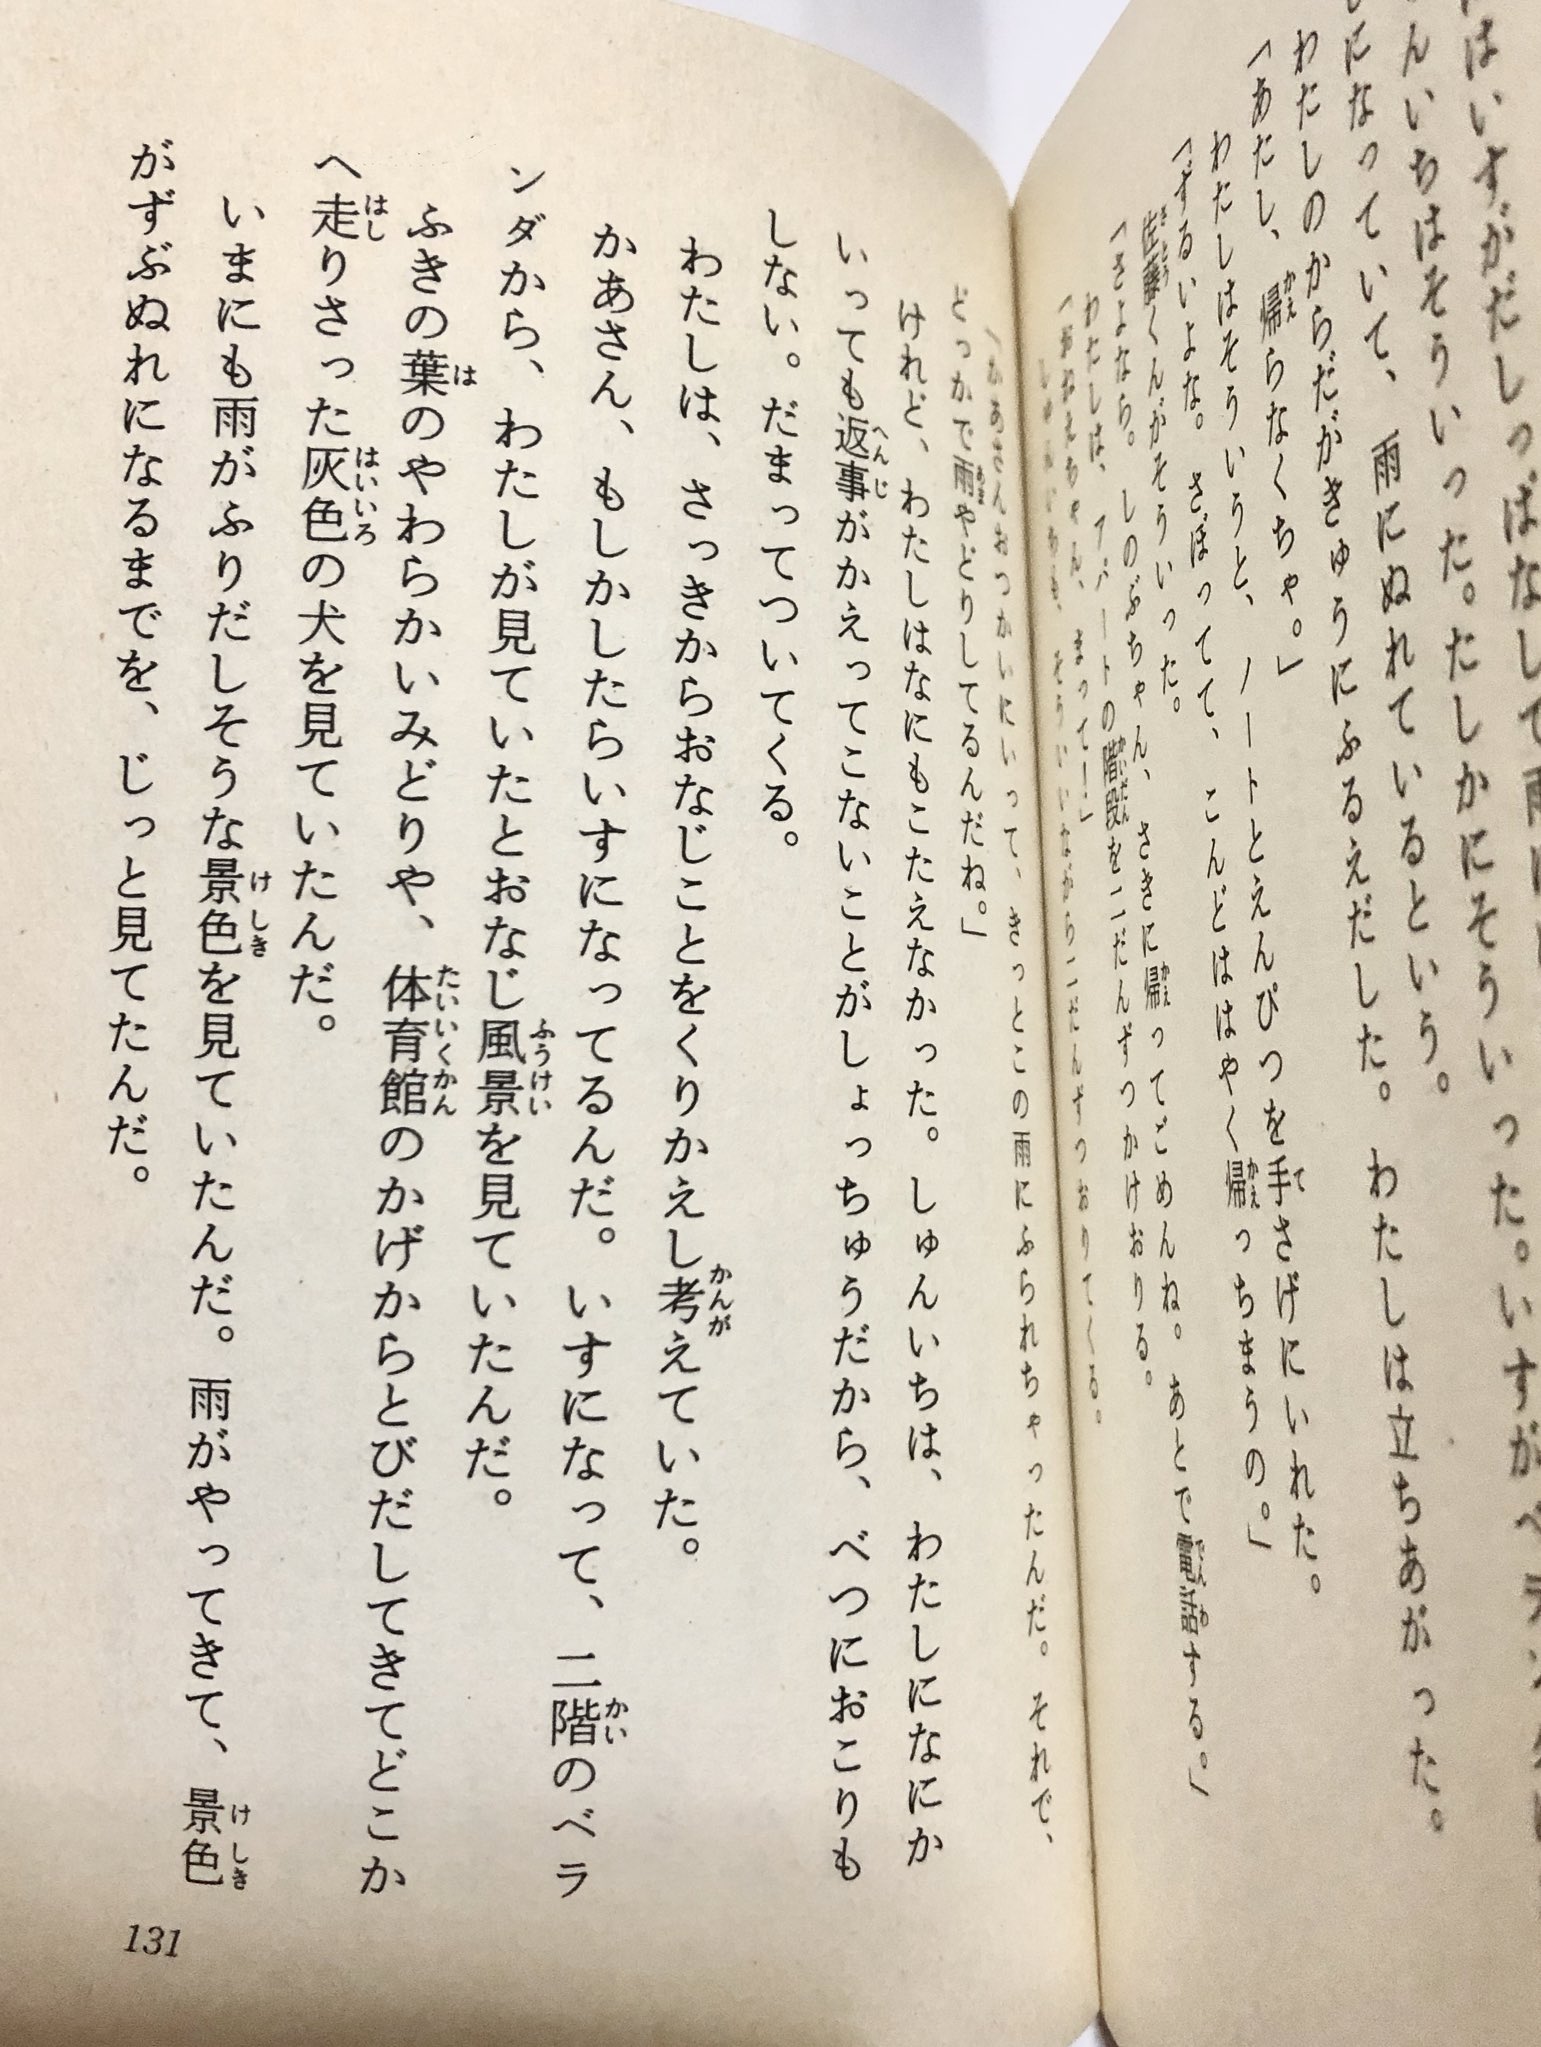 はいすがだしっぱなしで雨に
んいちはそういった。たしかにそういった。いすがベランダに
になっていて、雨にぬれているという。
わたしのからだがきゅうにふるえだした。わたしは立ちあがった。
「あたし、帰らなくちゃ。」
わたしはそういうと、ノートとえんぴつを手さげにいれた。
「ずるいよな。さぼってて、こんどははやく帰っちまうの。」
佐藤くんがそういった。
「さよなら。しのぶちゃん、さきに帰ってごめんね。あとで電話する。」
わたしは、アパートの階段を二だんずつかけおりる。
「おねえちゃん、まって！」
しゅんいちも、そういいながら二だんずつおりてくる。
「かあさんおつかいにいって、きっとこの雨にふられちゃったんだ。それで、
どっかで雨やどりしてるんだね。」
けれど、わたしはなにもこたえなかった。しゅんいちは、わたしになにか
いっても返事がかえってこないことがしょっちゅうだから、べつにおこりも
しない。だまってついてくる。
わたしは、さっきからおなじことをくりかえし考えていた。
かあさん、もしかしたらいすになってるんだ。いすになって、二階のベラ
ンダから、わたしが見ていたとおなじ風景を見ていたんだ。
ふきの葉のやわらかいみどりや、体育館のかげからとびだしてきてどこか
へ走りさった灰色の犬を見ていたんだ。
いまにも雨がふりだしそうな景色を見ていたんだ。雨がやってきて、景色
がずぶぬれになるまでを、じっと見てたんだ。
131